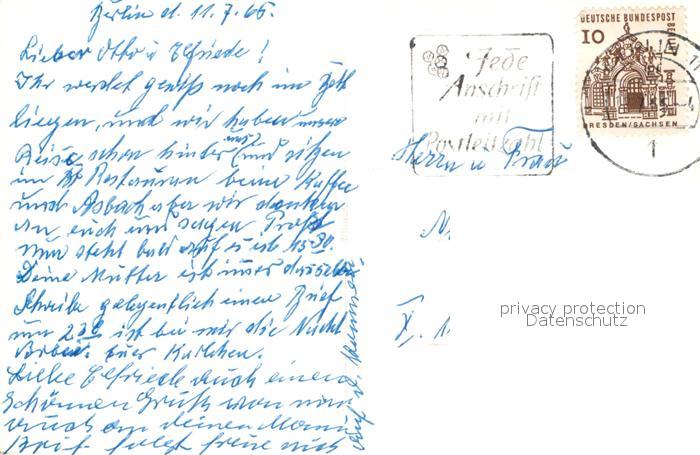 Berlin d. 11.7.65.
Lieber Otto u Elfriede!
Ihr werdet gewiß noch im Bett
liegen, und wir haben unsere
Reise schon hinter uns und sitzen
im Restauran beim Kaffee
und Asbach aber wir denken
an euch und sagen Prost
nun steht bald auf es ist
Deine Mutter ist
Schreibe gelegentlich einen Brief
um ist bei mir die Nacht
euer Karlchen.
Liebe Elfriede auch einen
schönen Gruß von mir
auch an deinen Mann
Brief folgt freue mich
Jede
Anschrift
mit
Postleitzahl
DEUTSCHE BUNDESPOST
BERLIN
10
DRESDEN/SACHSEN
1
Herrn u Frau
privacy protection
Datenschutz